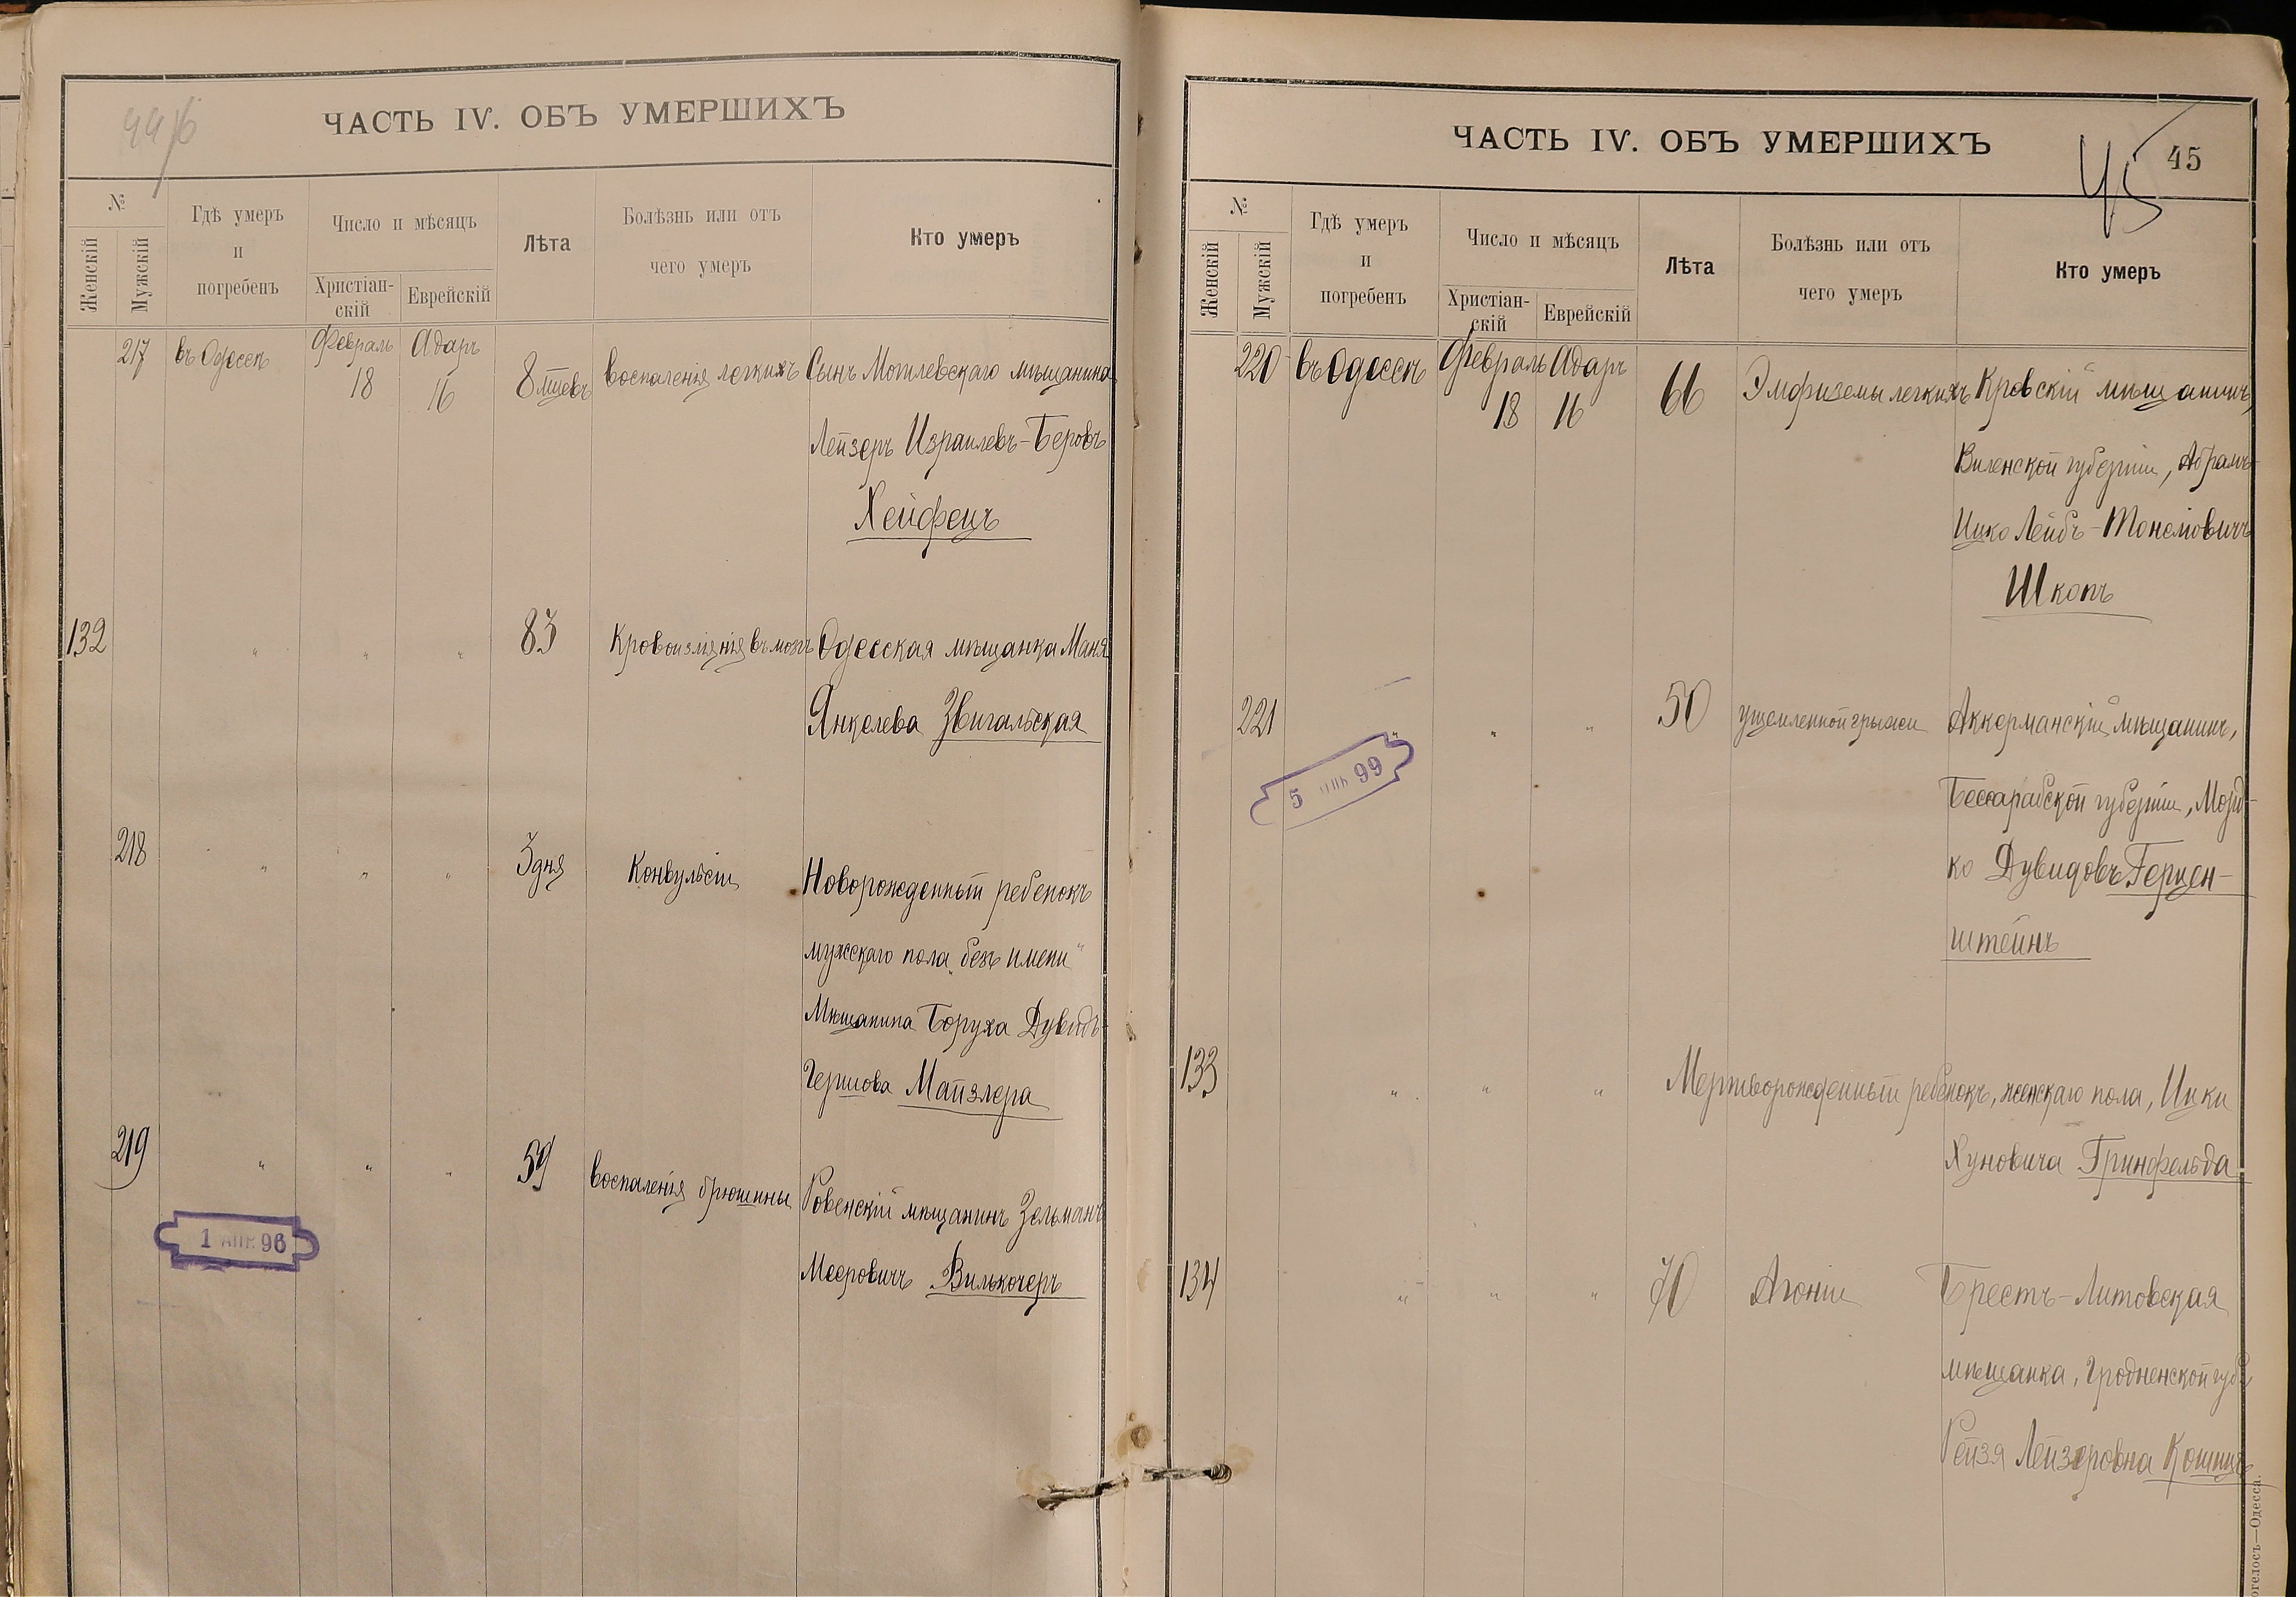 ЧАСТЬ IV. ОБЪ УМЕРШИХЪ
№
Женскій
Мужскій
Гдѣ умеръ
и
погребенъ
Число и мѣсяцъ
Христіан-
скій
Еврейскій
Лѣта
Болѣзнь или отъ
чего умеръ
Кто умеръ
217 въ Одессѣ Февраль Адаръ
18 16 8 мѣсяцевъ воспаленія легкихъ Сынъ Могилевскаго мѣщанина
Лейзеръ Израилевъ-Беровъ
Хейфецъ
132 " " " 83 Кровоизліянія въ мозгъ Одесская мѣщанка Маня
Янкелева Звигальская
218 " " " 3 дня Конвульсіи Новорожденный ребенокъ
мужскаго пола „безъ имени"
Мѣщанина Боруха Дувидъ-
Гершова Майзлера
219 " " " 59 воспаленія брюшины Ровенскій мѣщанинъ Зельманъ
Мееровичъ Вилькочеръ
1 АПР 96
ЧАСТЬ IV. ОБЪ УМЕРШИХЪ
45
45
№
Женскій
Мужскій
Гдѣ умеръ
и
погребенъ
Число и мѣсяцъ
Христіан-
скій
Еврейскій
Лѣта
Болѣзнь или отъ
чего умеръ
Кто умеръ
220 въ Одессѣ Февраль Адаръ
18 16 66 Эмфиземы легкихъ Кревскій мѣщанинъ,
Виленской губерніи, Абрамъ-
Ицко Лейбъ-
Шкопъ
221 " " " 50 ущемленной грыжи Аккерманскій мѣщанинъ,
Бессарабской губерніи, Морд-
ко Дувидовъ Герцен-
штейнъ
5 99
133 " " " Мертворожденный ребенокъ, женскаго пола, Ицки
Хуновича Гринфельда
134 " " " 70 Агоніи Брестъ-Литовская
мѣщанка, Гродненской губ.
Рейзя Лейзеровна
Одесса.